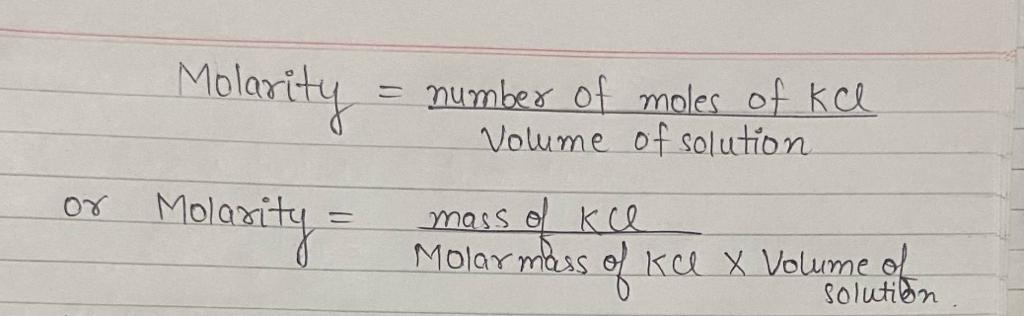 Molarity = number of moles of KCl
Volume of solution
or Molarity = mass of KCl
Molar mass of KCl X Volume of
solution.